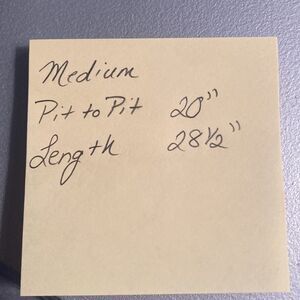 Medium
Pit to Pit 20"
Length 28½"